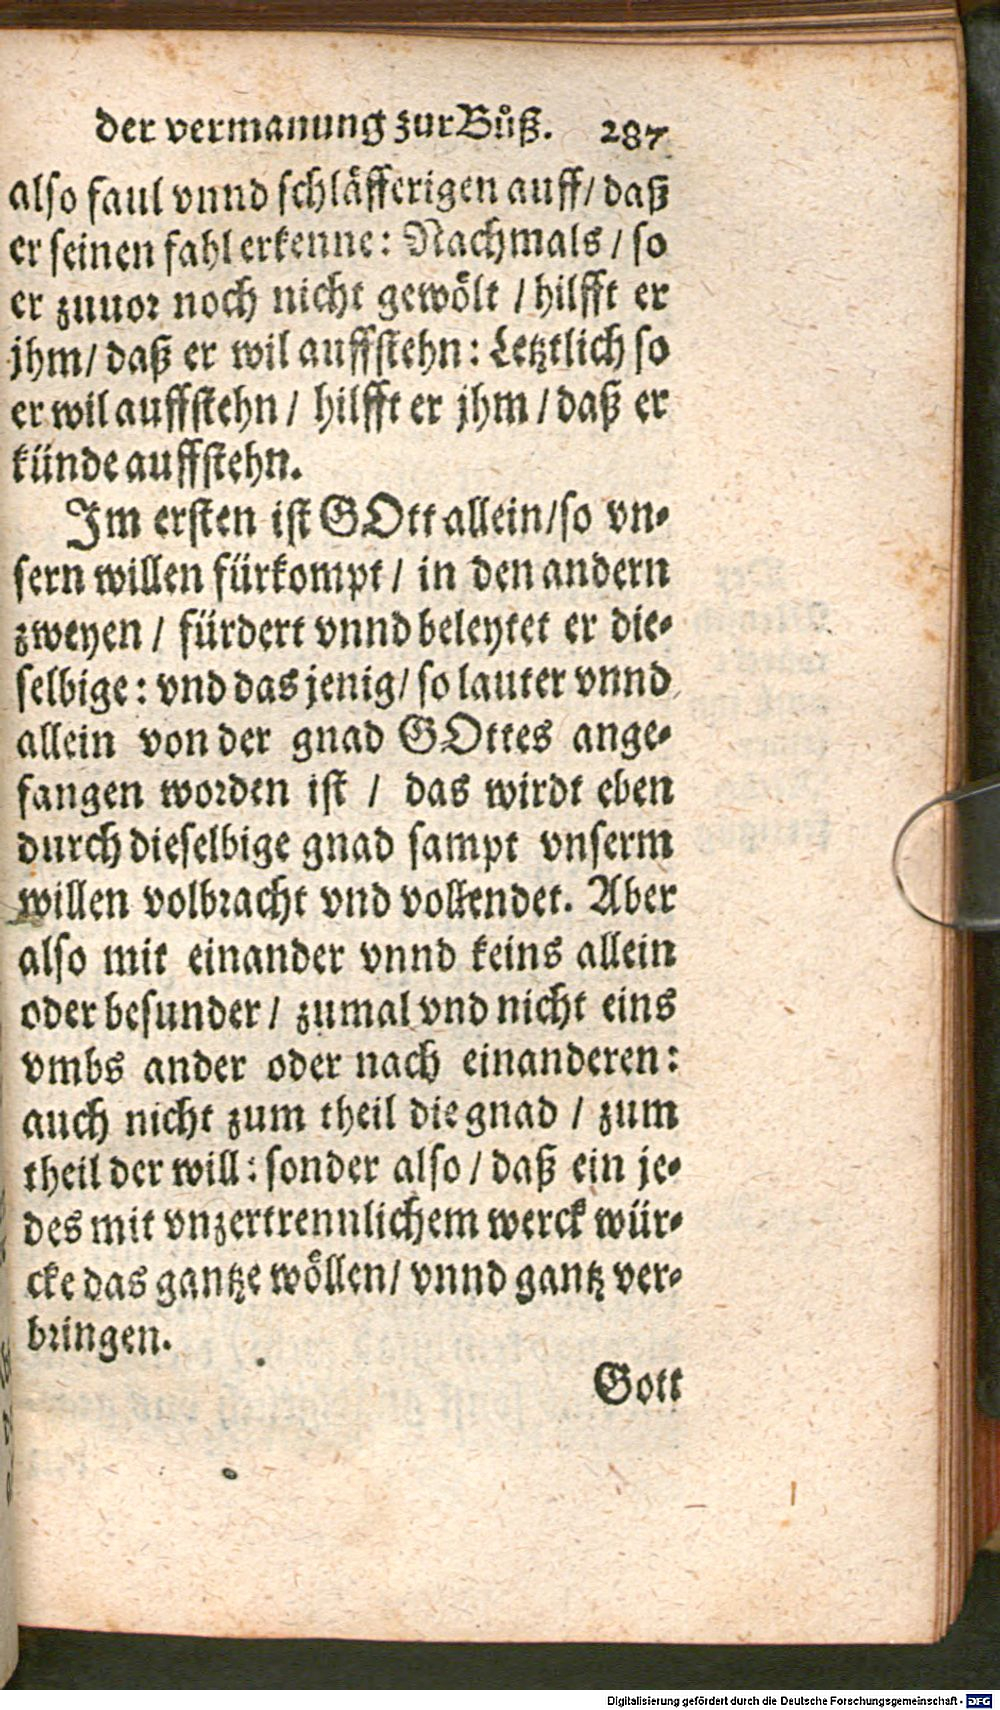 der vermanung zur Bůß. 287
also faul vnnd schläfferigen auff/ daß
er seinen fahl erkenne: Nachmals / so
er zuuor noch nicht gewölt / hilfft er
jhm/ daß er wil auffstehn: Letztlich so
er wil auffstehn / hilfft er jhm / daß er
künde auffstehn.
Im ersten ist GOtt allein/ so vn⸗
sern willen fürkompt / in den andern
zweyen / fürdert vnnd beleytet er die⸗
selbige: vnd das jenig/ so lauter vnnd
allein von der gnad GOttes ange⸗
fangen worden ist / das wirdt eben
durch dieselbige gnad sampt vnserm
willen volbracht vnd vollendet. Aber
also mit einander vnnd keins allein
oder besunder / zumal vnd nicht eins
vmbs ander oder nach einanderen:
auch nicht zum theil die gnad / zum
theil der will: sonder also / daß ein je⸗
des mit vnzertrennlichem werck wür⸗
cke das gantze wöllen/ vnnd gantz ver⸗
bringen.
Gott
Digitalisierung gefördert durch die Deutsche Forschungsgemeinschaft - DFG